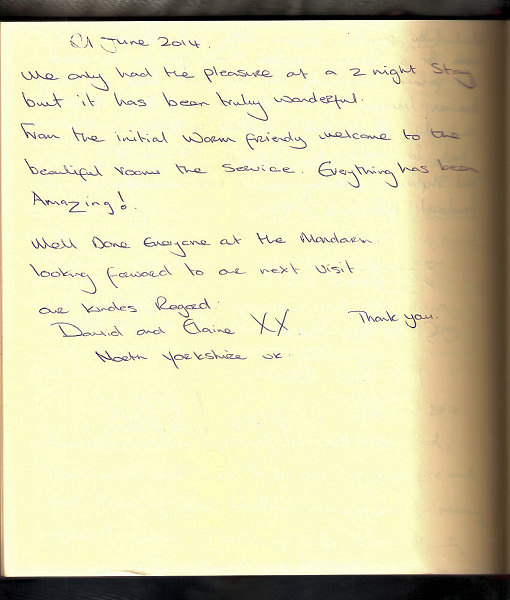 21 June 2014.
We only had the pleasure at a 2 night Stay
but it has been truly wonderful.
From the initial warm friendly welcome to the
beautiful rooms the service. Everything has been
Amazing!
Well Done Everyone at the Mandarin
looking forward to our next visit
our kindes Regard.
David and Elaine XX.
Thank you.
North Yorkshire UK.